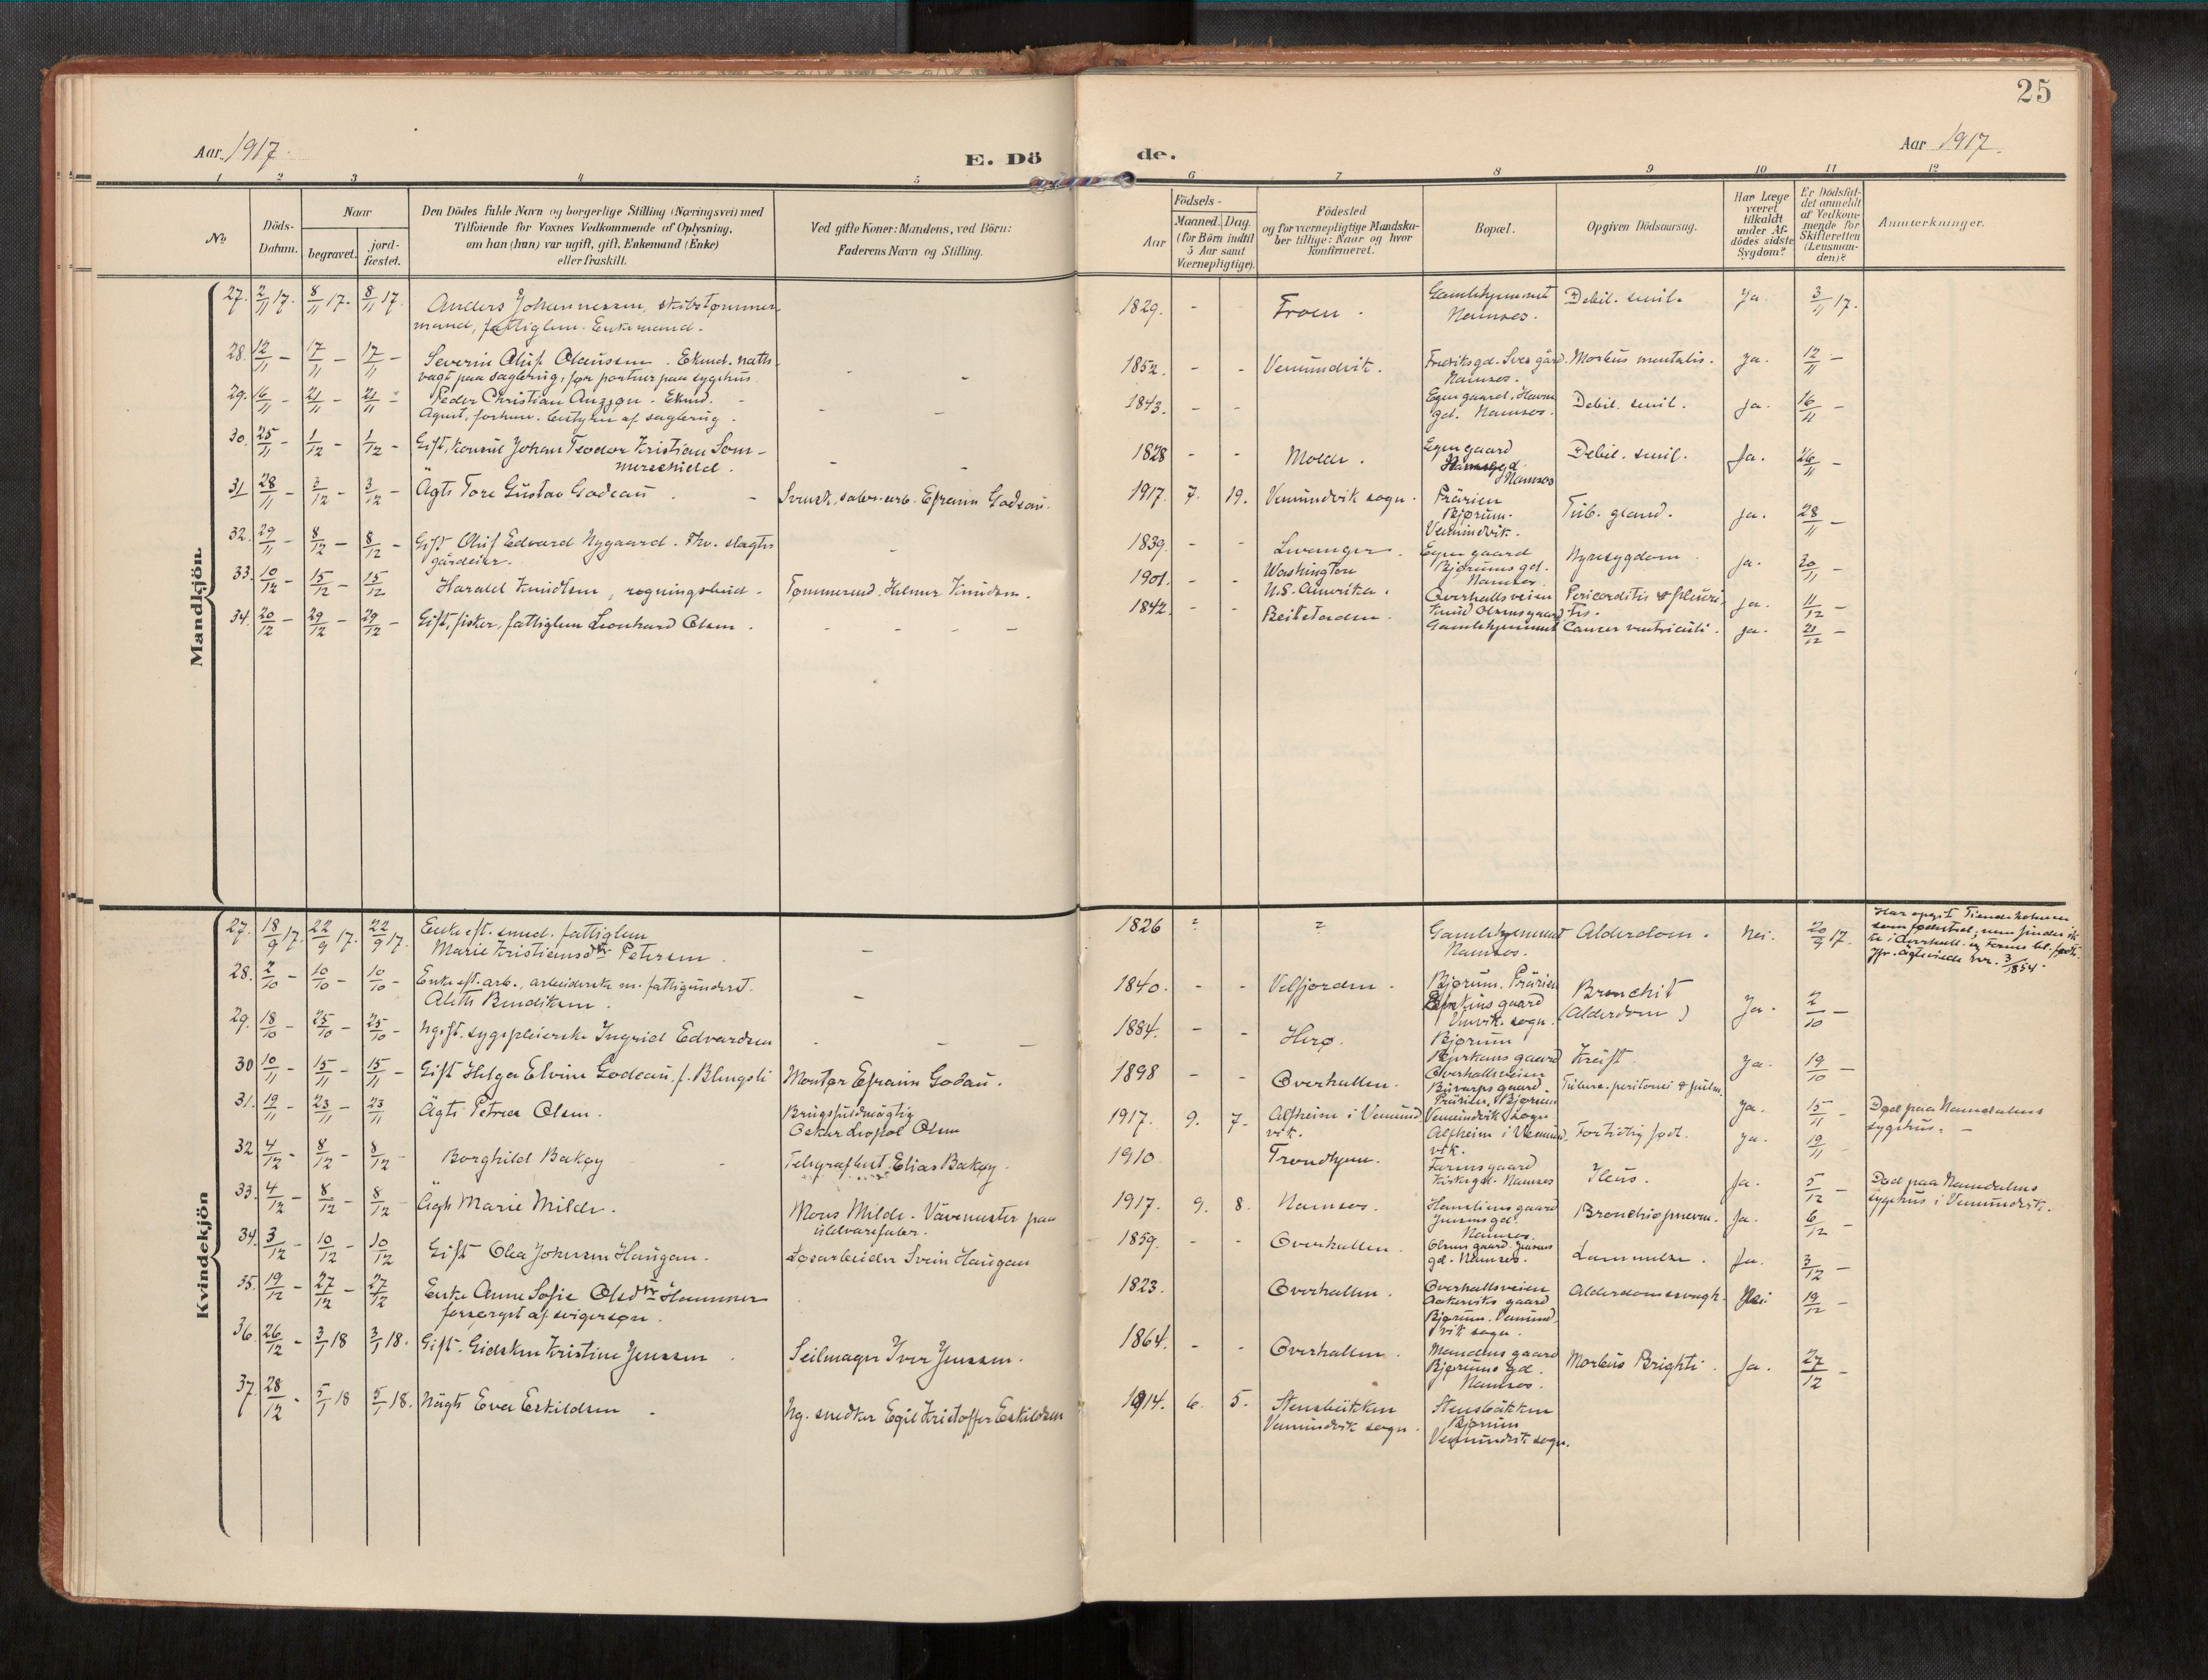 25
Aar 1917.
E. Dö de.
Aar 1917.
1 2 3 4 5 6 7 8 9 10 11 12
No.
Döds-Datum.
Naar
begravet. jord-fæstet.
Den Dödes fulde Navn og borgerlige Stilling (Næringsvei) med
Tilföiende for Voxnes Vedkommende af Oplysning,
om han (hun) var ugift, gift, Enkemand (Enke)
eller fraskilt.
Ved gifte Koner: Mandens, ved Börn:
Faderens Navn og Stilling.
Födsels-
Aar Maaned. Dag.
(for Börn indtil
5 Aar samt
Værnepligtige).
Födested
og for værnepligtige Mandska-
ber tillige: Naar og hvor
konfirmeret.
Bopæl.
Opgiven Dödsaarsag.
Har Læge
været
tilkaldt
under Af-
dödes sidste
Sygdom?
Er Dödsfal-
det anmeldt
af Vedkom-
mende for
Skifteretten
(Lensman-
den)?
Anmærkninger.
Mandkjön.
27. 2/11 17. 8/11 17. 8/11 17. Anders Johannessen, skibstømmer
mand, fattiglem. Enkemand. 1829. - - Froen. Gamlehjemmet
Namsos. Debil. senil. Ja. 3/11 17.
28. 12/11 - 17/11 - 17/11 - Severin Oluf Olaussen. Ekmd. natte
vagt paa sagbrug, før portner paa sygehus. - - 1852. - - Vemundvik. Fredriksgd. Sves gård.
Namsos. Morbus mentalis. Ja. 12/11 -
29. 16/11 - 21/11 - 21/11 - Peder Christian Anzjøn. Ekmd.
Agent, forhen. bestyrer af sagbrug. - - 1843. - - Egen gaard, Havne
gd. Namsos. Debil. senil. Ja. 16/11 -
30. 25/11 - 1/12 - 1/12 - Gift, konsul Johan Teodor Kristian Som-
merschield. - - 1828 - - Molde. Egen gaard
Namsos Debil. senil. Ja. 26/11 -
31 28/11 - 3/12 - 3/12 - Ägte Tore Gustav Godeau. - Svensk, sabr. arb. Efraim Godeau. 1917. 7. 19. Vemundvik sogn. Prärien
Bjørum.
Vemundvik. Tub. gland. Ja. 28/11 -
32. 29/11 - 8/12 - 8/12 - Gift Oluf Edvard Nygaard. Fhv. slagter
gårdeier. - 1839. - - Levanger. Egen gaard
Bjørumsgd.
Namsos. Nyresygdom. Ja. 30/11 -
33. 10/12 - 15/12 - 15/12 Harald Knudtsen, regningsbud. - Tømmermd. Helmer Knudsen. 1901. - - Washington
U.S. Amerika. Overhallsveien
Knud Olsensgaard Pericarditis & pleuri-
tis. Ja. 11/12 -
34. 20/12 - 29/12 - 29/12 - Gift, fisker, fattiglem Leonhard Olsen. - - - - 1842. - - Beitstaden. Gamlehjemmet Cancer ventriculi. Ja. 21/12 -
Kvindekjön
27. 18/9 17. 22/9 17. 22/9 17. Enke eft. smed. fattiglem
Marie Kristiansdtr Petersen. - 1826 ? ? Gamlehjemmet
Namsos. Alderdom. Nei. 20/9 17. Har opgit
som fødested, men findes ik-
ke i Overhall. 3/1854.
28. 2/10 - 10/10 - 10/10 - Enke eft. arb., arbeiderske m. fattigunderst.
Aleth Bendiksen. - 1840. - - Velfjorden. Bjørum, Prärien
gaard
Vmvik. sogn. Bronchit
(Alderdom) Ja. 2/10 -
29. 18/10 - 25/10 - 25/10 - Ugift. sygepleierske Ingrid Edvardsen - - - 1884. - - Herø. Bjørum
gaard Kräft. Ja. 19/10 -
30 10/11 - 15/11 - 15/11 - Gift Helga Elvine Godeau, f. Blengsli Montør Efraim Godau. 1898 - - Overhallen. Overhallsveien
Buvarps gaard.
Prärien, Bjørum
Vemundvik sogn Tuberc. peritonei & pulm. Ja. 15/11 - Død paa Namdalens
sygehus. -
31. 19/11 - 23/11 - 23/11 Ägte Petrea Olsen. Brugsfuldmägtig
Oskar Leopol Olsen 1917. 9. 7. Alfheim i Vemund
vik. Alfheim i Vemund
vik. For tidlig født. Ja. 19/11 -
32 4/12 - 8/12 - 8/12 - Borghild Bakøy - Telegrafbest. Elias Bakøy. 1910 Trondhjem. Farmsgaard
Kirkegd. Namsos Ileus. Ja. 5/12 - Død paa Namdalens
sygehus i Vemundvik.
33. 4/12 - 8/12 - 8/12 - Ägte Marie Milde. Mons Milde. Vävemester paa
uldvarefabr. 1917. 9. 8. Namsos. gaard
Jensens gd.
Namsos. Bronchiopneum. Ja. 6/12 -
34. 3/12 - 10/12 - 10/12 Gift Olea Johnsen Haugan. Løsarbeider Svein Haugan 1859. - - Overhallen. Olsens gaard. Jensens
gd. Namsos. Lammelse. Ja. 3/12 -
35. 19/12 - 27/12 - 27/12 Enke Anne Sofie Olsdtr Hammer
forsørget af svigersøn. 1823. Overhallen. Overhallsveien
Aakerviks gaard
Bjørum. Vemund
vik sogn. Alderdomssvagh. Nei 19/12 -
36. 26/12 - 3/1 18 3/1 18. Gift. Gidsken Kristine Jenssen. Seilmager Iver Jenssen. 1864. - - Overhallen. Mandens gaard
Bjørums gd.
Namsos. Morbus Brighti. Ja. 27/12 -
37. 28/12 - 5/1 18 5/1 18. Uägte Eva Eskildsen - Ug. snedker Egil Kristoffer Eskildsen 1914. 6. 5. Stensbäkken
Vemundvik sogn. Stensbäkken
Bjørum
Vemundvik sogn.